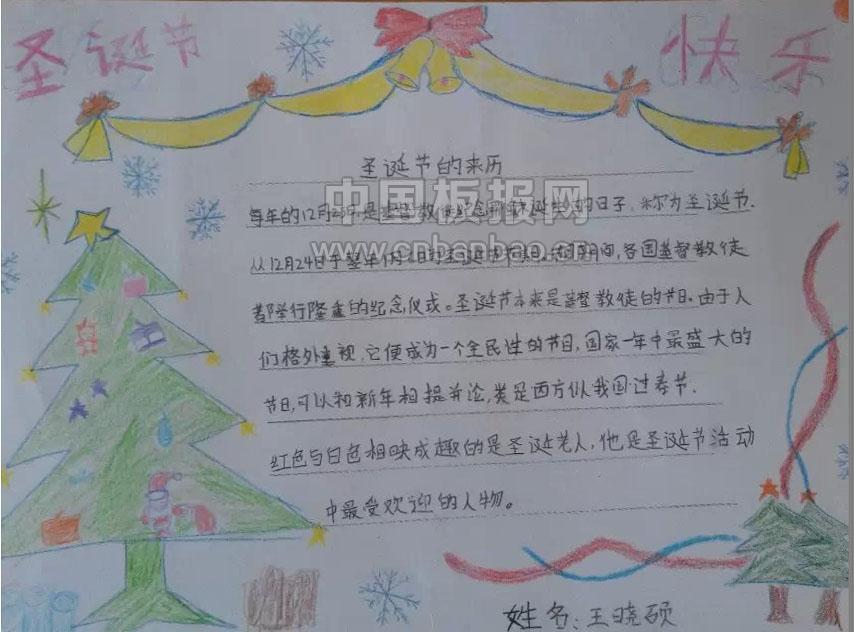 圣诞节 快乐
圣诞节的来历
中国板报网
www.cnbanbao.com
每年的12月25日,是基督教徒纪念耶稣诞生的日子,称为圣诞节.
从12月24日于翌年1月6日为圣诞节节期。节日期间,各国基督教徒
都举行隆重的纪念仪式。圣诞节本来是基督教徒的节日.由于人
们格外重视,它便成为一个全民性的节日,国家一年中最盛大的
节日,可以和新年相提并论,类是西方似我国过春节.
红色与白色相映成趣的是圣诞老人,他是圣诞节活动
中最受欢迎的人物。
姓名:王晓硕